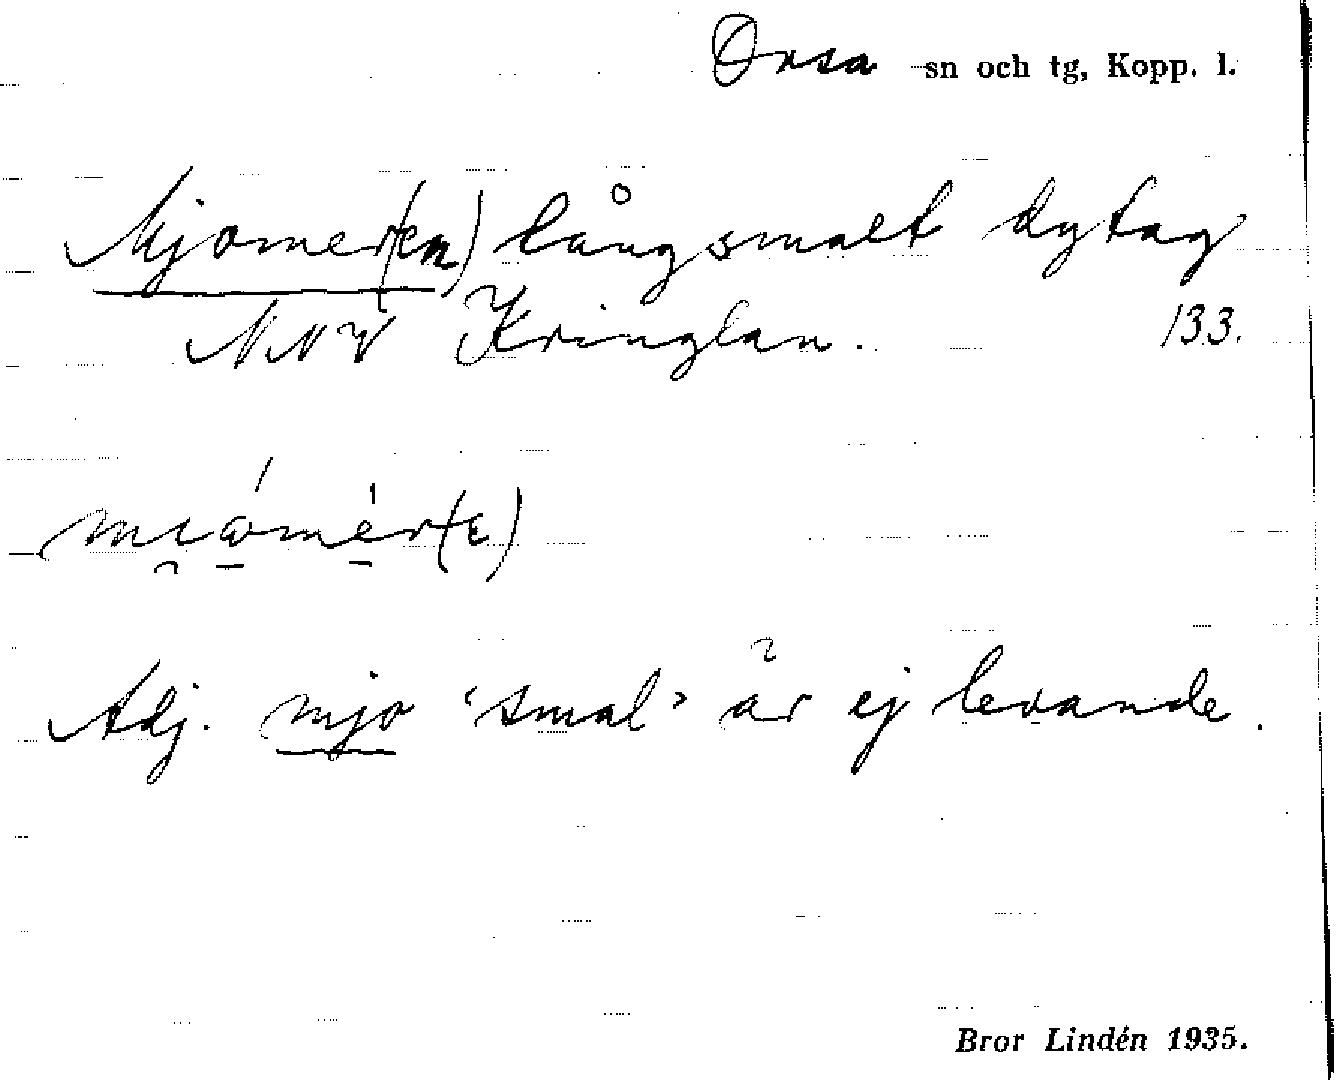 Orsa sn och tg, Kopp. l.
Mjomer(en) långsmalt dytag
NNV Kringlan. 133.
Adj. mjo 'smal' är ej levande.
Bror Lindén 1935.